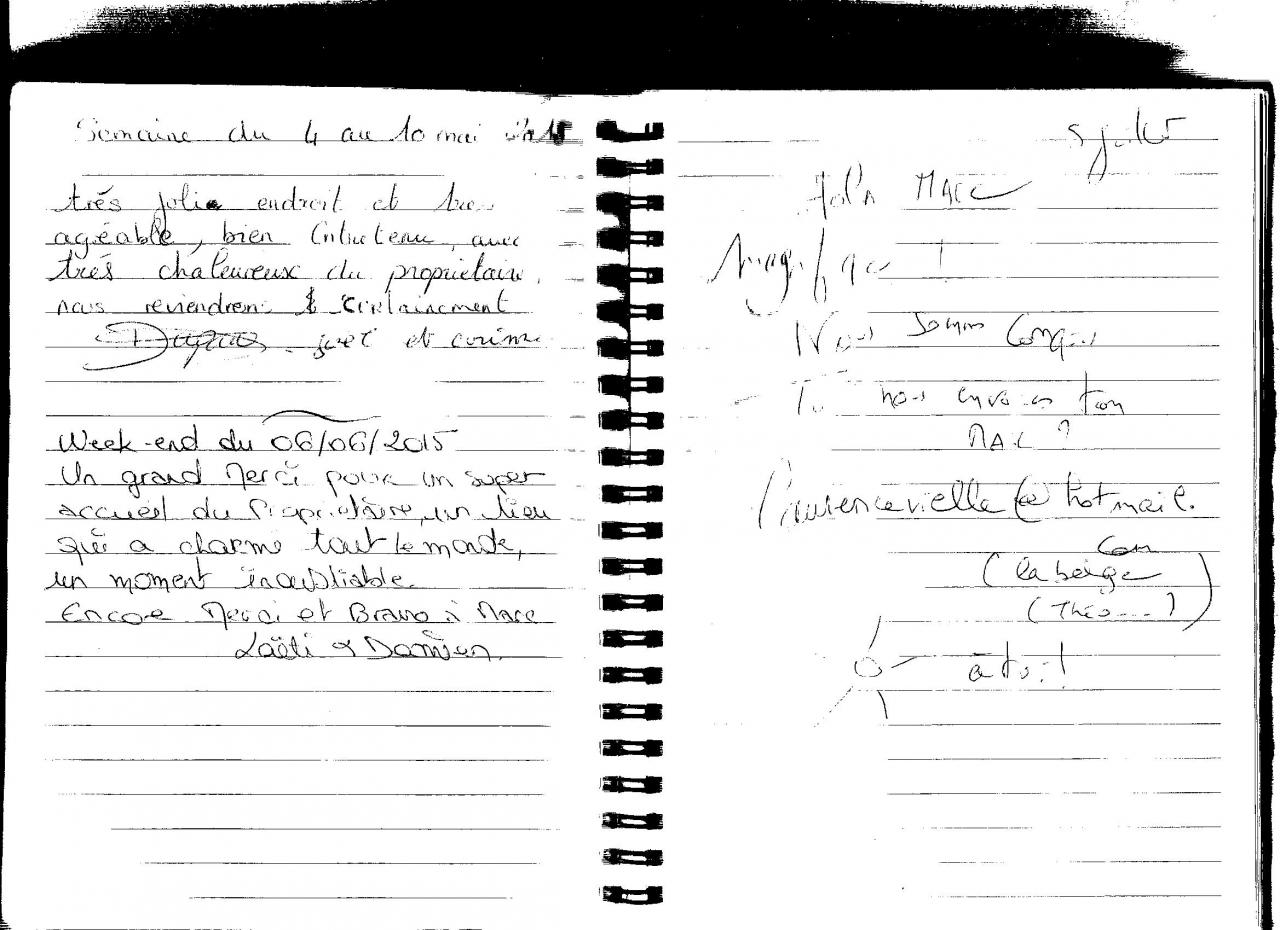 Semaine du 4 au 10 mai 2015
très jolie endroit et très
agéable, bien entretenu, avec
très chaleureux du propriétaire,
nous reviendrons certainement
joel et corinne
Week-end du 06/06/2015
Un grand Merci pour un super
accueil du Propriétaire, un lieu
qui a charme tout le monde,
un moment inoubliable.
Encore Merci et Bravo à Marc
Laëti & Damien.
5 juil 15
Marc
Magnifique !
Nous sommes conquis
Tu nous envoies ton
MAIL ?
laurencevielle@hotmail.
com
(la belge
(Théo...?)
à toi !